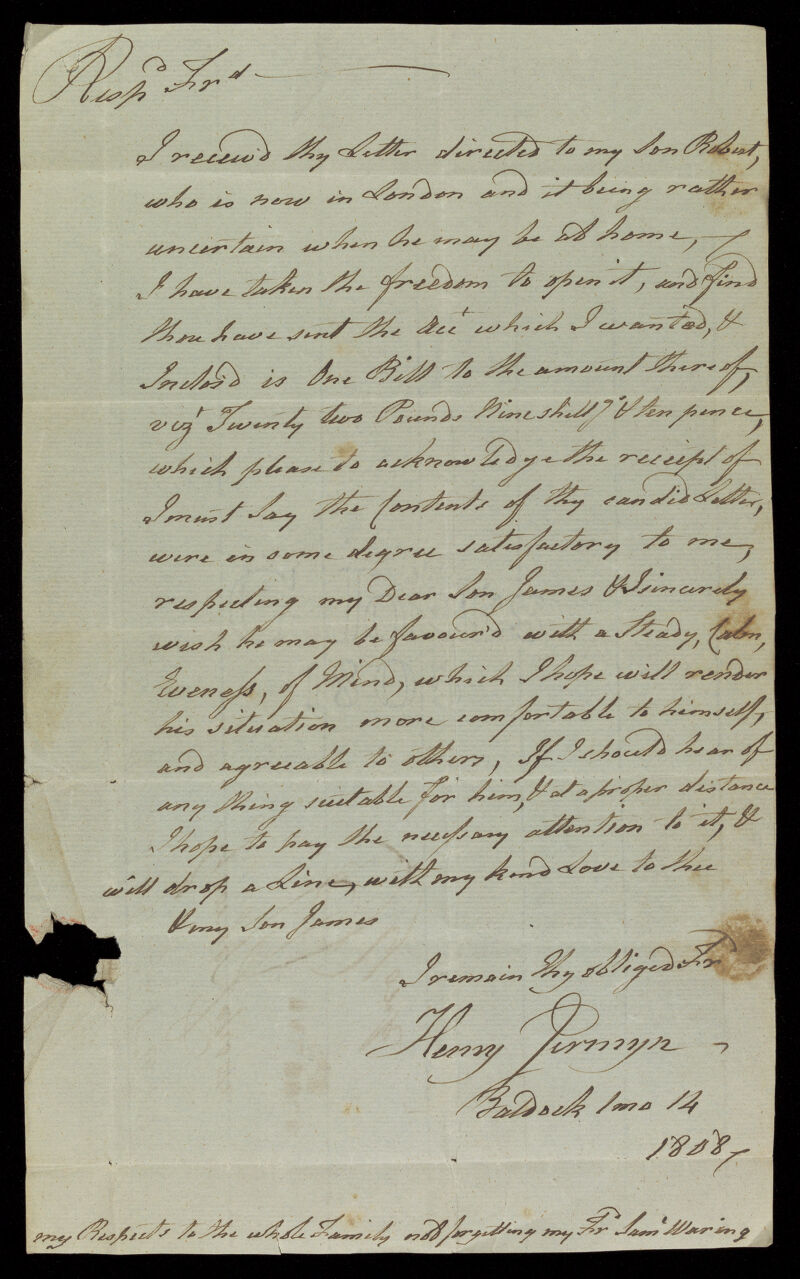 Respd Frd
I receiv'd thy Letter directed to my Son Robert,
who is now in London and it being rather
uncertain when he may be at home, –
I have taken the freedom to open it, and find
thou have sent the Acct which I wanted, &
Inclos'd is One Bill to the amount thereof,
vizt Twenty two Pounds Nine shillgs & ten pence,
which please to acknowledge the receipt of
I must say the Contents of thy candid Letter,
were in some degree satisfactory to me,
respecting my Dear Son James & I sincerely
wish he may be favour'd with a Steady, Calm,
Eveness, of Mind, which I hope will render
his situation more comfortable to himself,
and agreeable to others, If I should hear of
any thing suitable for him, & at a proper distance
I hope to pay the necessary attention to it, &
will drop a Line, with my kind Love to thee
& my Son James
I remain thy obliged Frd
Henry Jermyn
Baldock 1 mo 14
1808
my Respects to the whole Family not forgetting my Frd Saml Waring